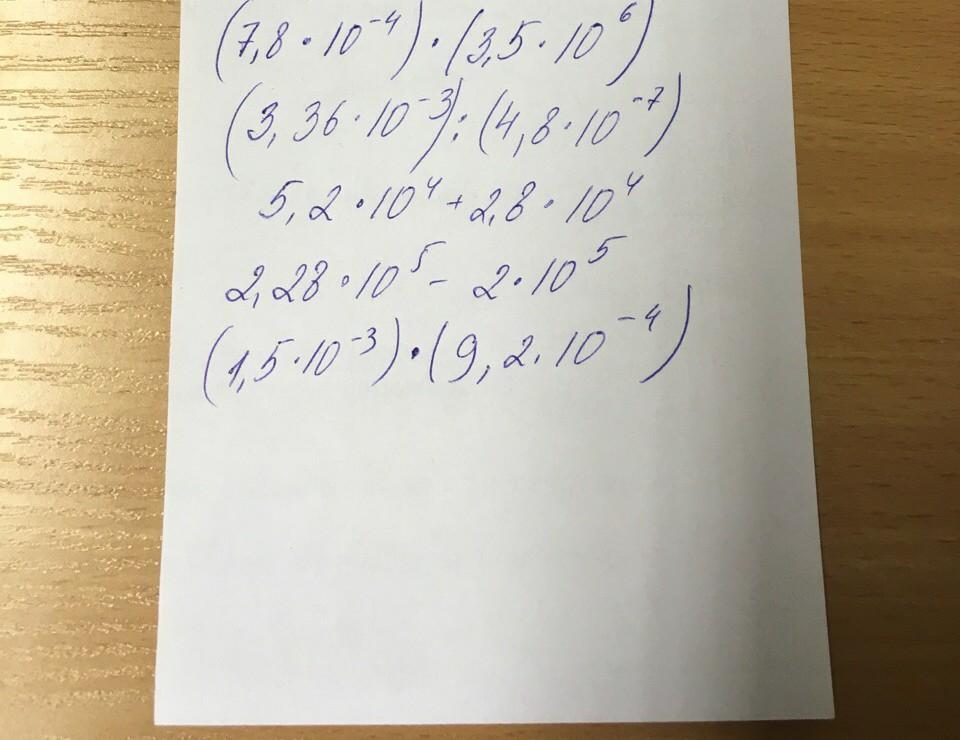 (7,8 · 10⁻⁴) · (3,5 · 10⁶)
(3,36 · 10⁻³) : (4,8 · 10⁻⁷)
5,2 · 10⁴ + 2,8 · 10⁴
2,28 · 10⁵ - 2 · 10⁵
(1,5 · 10⁻³) · (9,2 · 10⁻⁴)